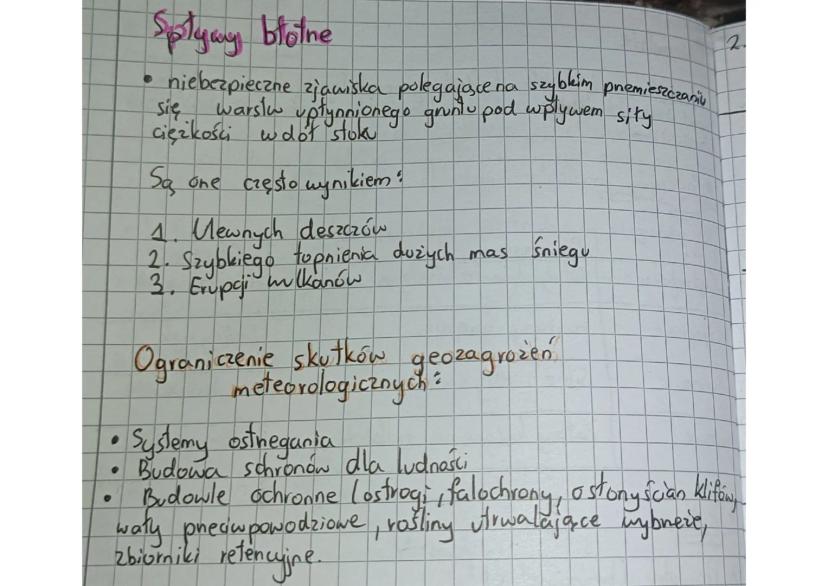 Spływy błotne
• niebezpieczne zjawiska polegające na szybkim przemieszczaniu
się warstw upłynnionego gruntu pod wpływem siły
ciężkości w dół stoku
Są one często wynikiem:
1. Ulewnych deszczów
2. Szybkiego topnienia dużych mas śniegu
3. Erupcji wulkanów
Ograniczenie skutków geozagrożeń
meteorologicznych:
• Systemy ostrzegania
• Budowa schronów dla ludności
• Budowle ochronne (ostrogi, falochrony, osłony ścian klifów,
wały przeciwpowodziowe, rośliny utrwalające wybrzeże,
zbiorniki retencyjne.
2.